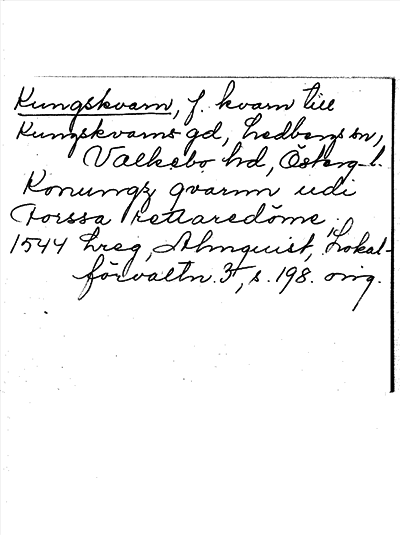 Kungskvarn, f. kvarn till
Kungskvarns gd, Ledbergs sn,
Valkebo hd, Österg. l.
Konungz qvarnn udi
Forssa rettaredöme
1544 hreg, Almquist, Lokal-
förvaltn. 3, s. 198. orig.